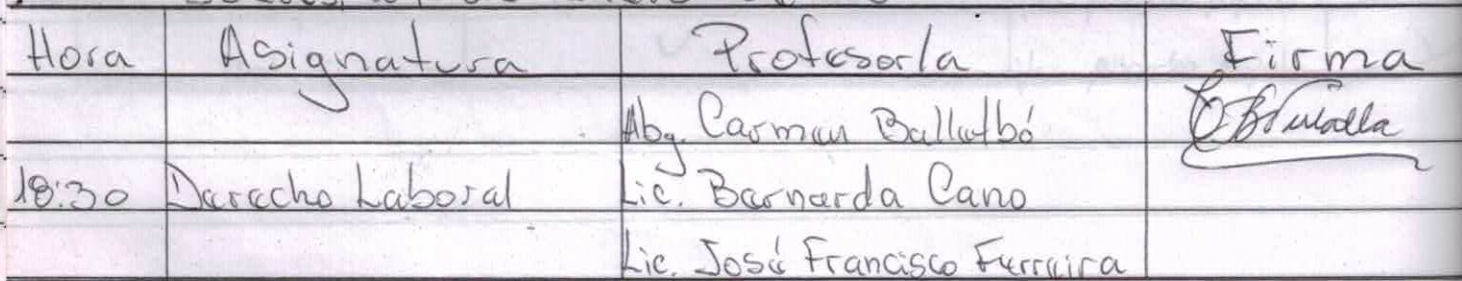 Hora Asignatura Profesor/a Firma
Abg. Carmen Ballatbó
18:30 Derecho Laboral Lic. Bernarda Cano
Lic. José Francisco Ferreira